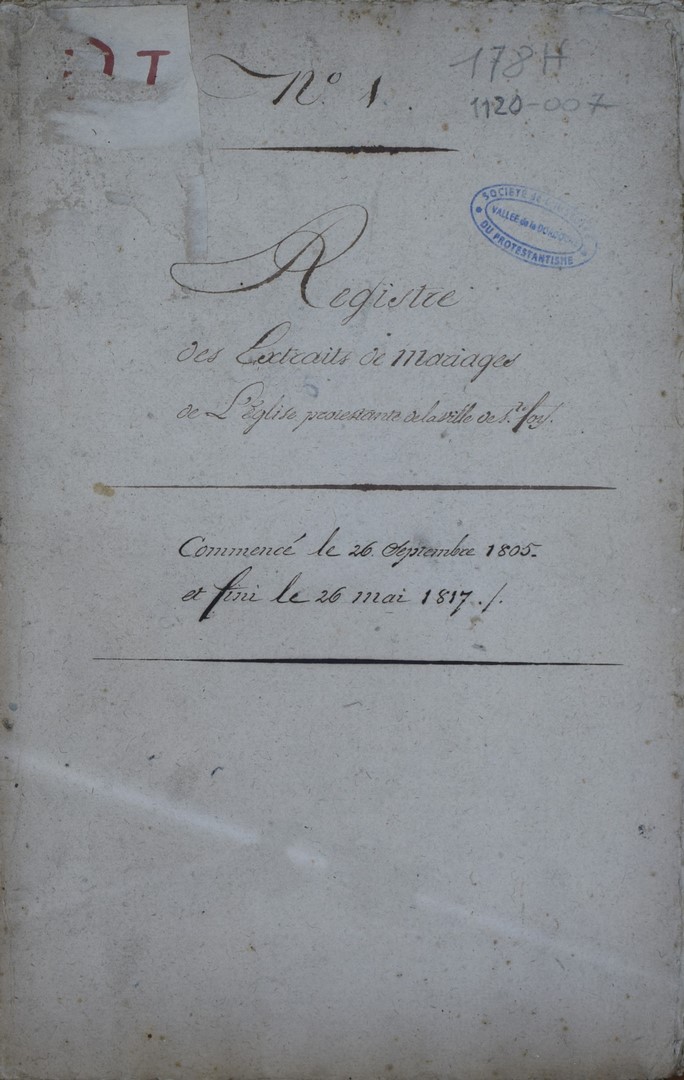 N.º 1.
178H
1120-007
SOCIÉTÉ de
VALLÉE de la DORDOGNE
DU PROTESTANTISME
Registre
des Extraits de mariages
de L'Eglise protestante de la ville de S.te foy.
Commencé le 26 Septembre 1805.
et fini le 26 mai 1817./.